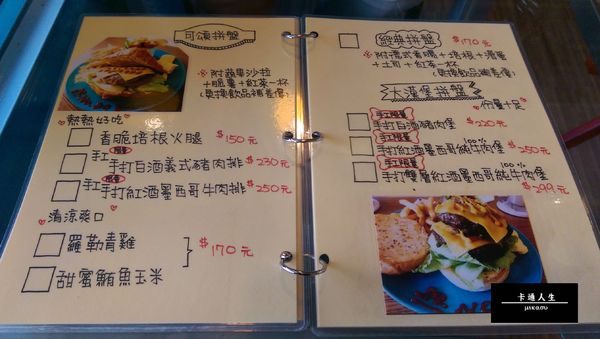 可頌拼盤
※附蘋果沙拉
+脆薯+紅茶一杯
(更換飲品補差價)
熱熱好吃
香脆培根火腿 $150元
手工限量
手打白酒義式豬肉排 $230元
手工限量
手打紅酒墨西哥牛肉排 $250元
清涼爽口
羅勒青雞
甜蜜鮪魚玉米
$170元
經典拼盤 $170元
※附德式香腸+培根+滑蛋
+土司+紅茶一杯
(更換飲品補差價)
大漢堡拼盤
份量十足
手工限量
手打白酒豬肉堡 $220元
手工限量
手打紅酒墨西哥純牛肉堡 100% $250元
手工限量
手打雙層紅酒墨西哥純牛肉堡 100%
$299元
卡通人生